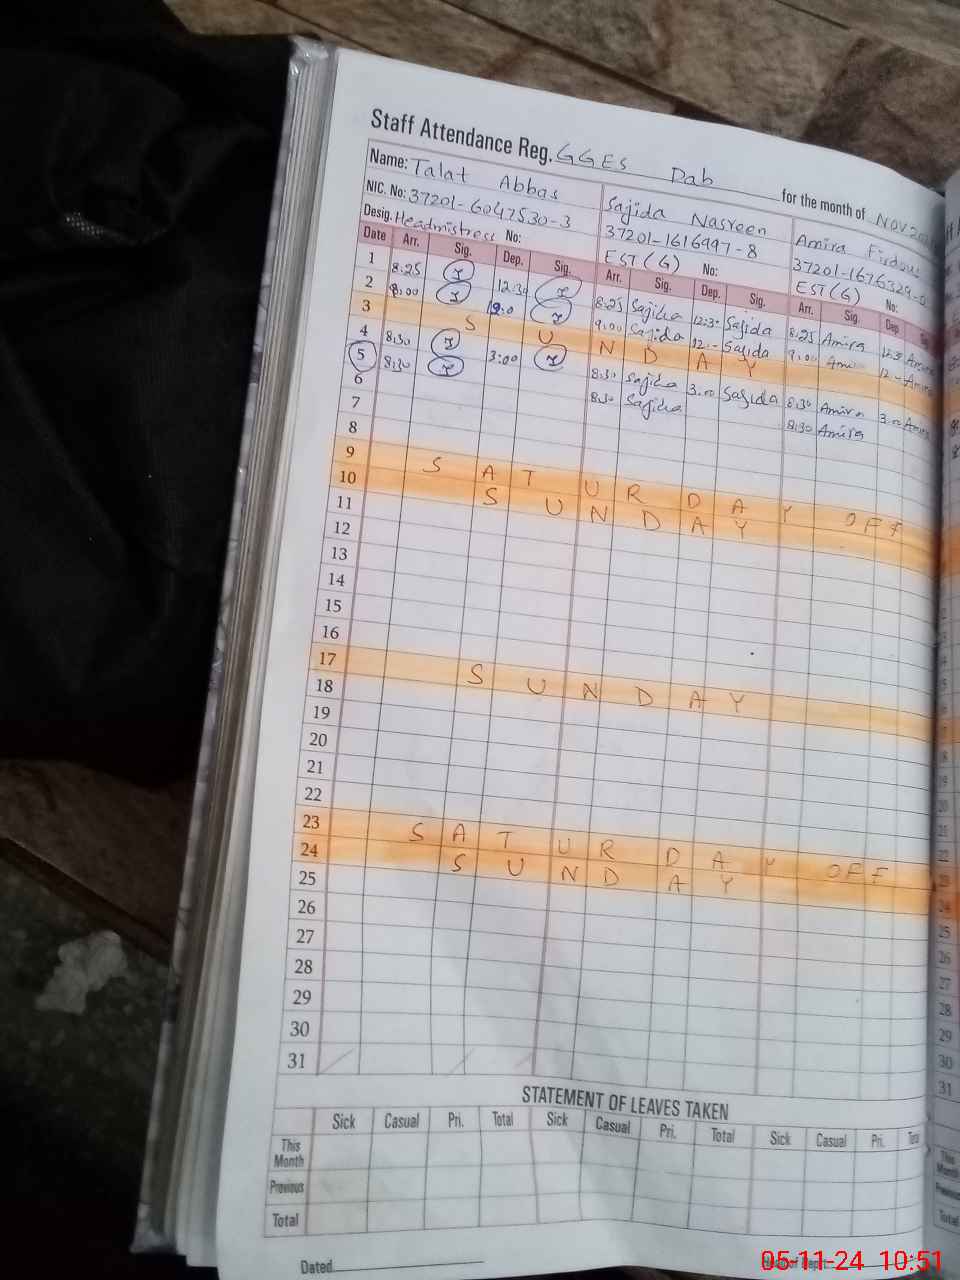 Staff Attendance Reg. GGES Dab for the month of Nov
Name: Talat Abbas Sajida Nasreen Amira Firdous
NIC. No: 37201-6047530-3 37201-1616997-8 37201-1676329-
Desig. Headmistress No: EST(G) No: EST(G) No:
Date Arr. Sig. Dep. Sig. Arr. Sig. Dep. Sig. Arr. Sig. Dep
1 8.25 12.30 8.25 Sajida 12:30 Sajida 8.25 Amira 12:30
2 9.00 9.00 Sajida 12.- Sajida 9.00 Ami 12.-
3 S U N D A Y
4 8.30 3:00 8.30 Sajida 3.00 Sajida 8.30 Amira 3.00
5 8.30 8.30 Sajida 8.30 Amira
6
7
8
9 S A T U R D A Y OFF
10 S U N D A Y
11
12
13
14
15
16
17 S U N D A Y
18
19
20
21
22
23 S A T U R D A Y OFF
24 S U N D A Y
25
26
27
28
29
30
31
STATEMENT OF LEAVES TAKEN
Sick Casual Pri. Total Sick Casual Pri. Total Sick Casual Pri. Total
This Month
Previous
Total
Dated Head of Deptt.
05-11-24 10:51